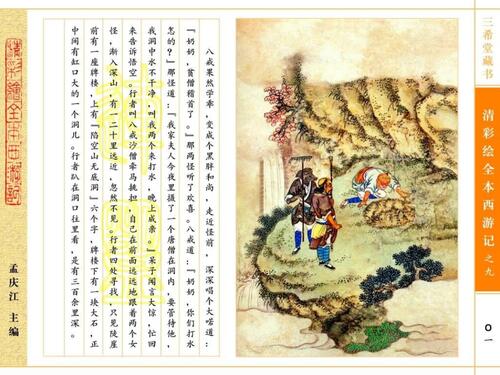 三希堂藏书
清彩绘全本西游记 之九
〇一
八戒果然学乖，变成个黑胖和尚，走近怪前，深深唱个大喏道：
『奶奶，贫僧稽首了。』那两怪听了欢喜。八戒道：『奶奶，你们打水
怎的？』那怪道：『我家夫人今夜里摄了一个唐僧在洞内，要管待他，
我洞中水不干净，叫我两个来打水，晚上成亲。』呆子闻言大惊，忙回
来告诉悟空。行者叫八戒沙僧牵马挑担，自己在前面远远地跟着两个女
怪，渐入深山，有一二十里远近，忽然不见。行者四处寻找，只见陡崖
前有一座牌楼，上有『陷空山无底洞』六个字，牌楼下有一块大石，正
中间有缸口大的一个洞儿。行者趴在洞口往里看，是有三百余里深。
清彩绘全本西游记
孟庆江 主编